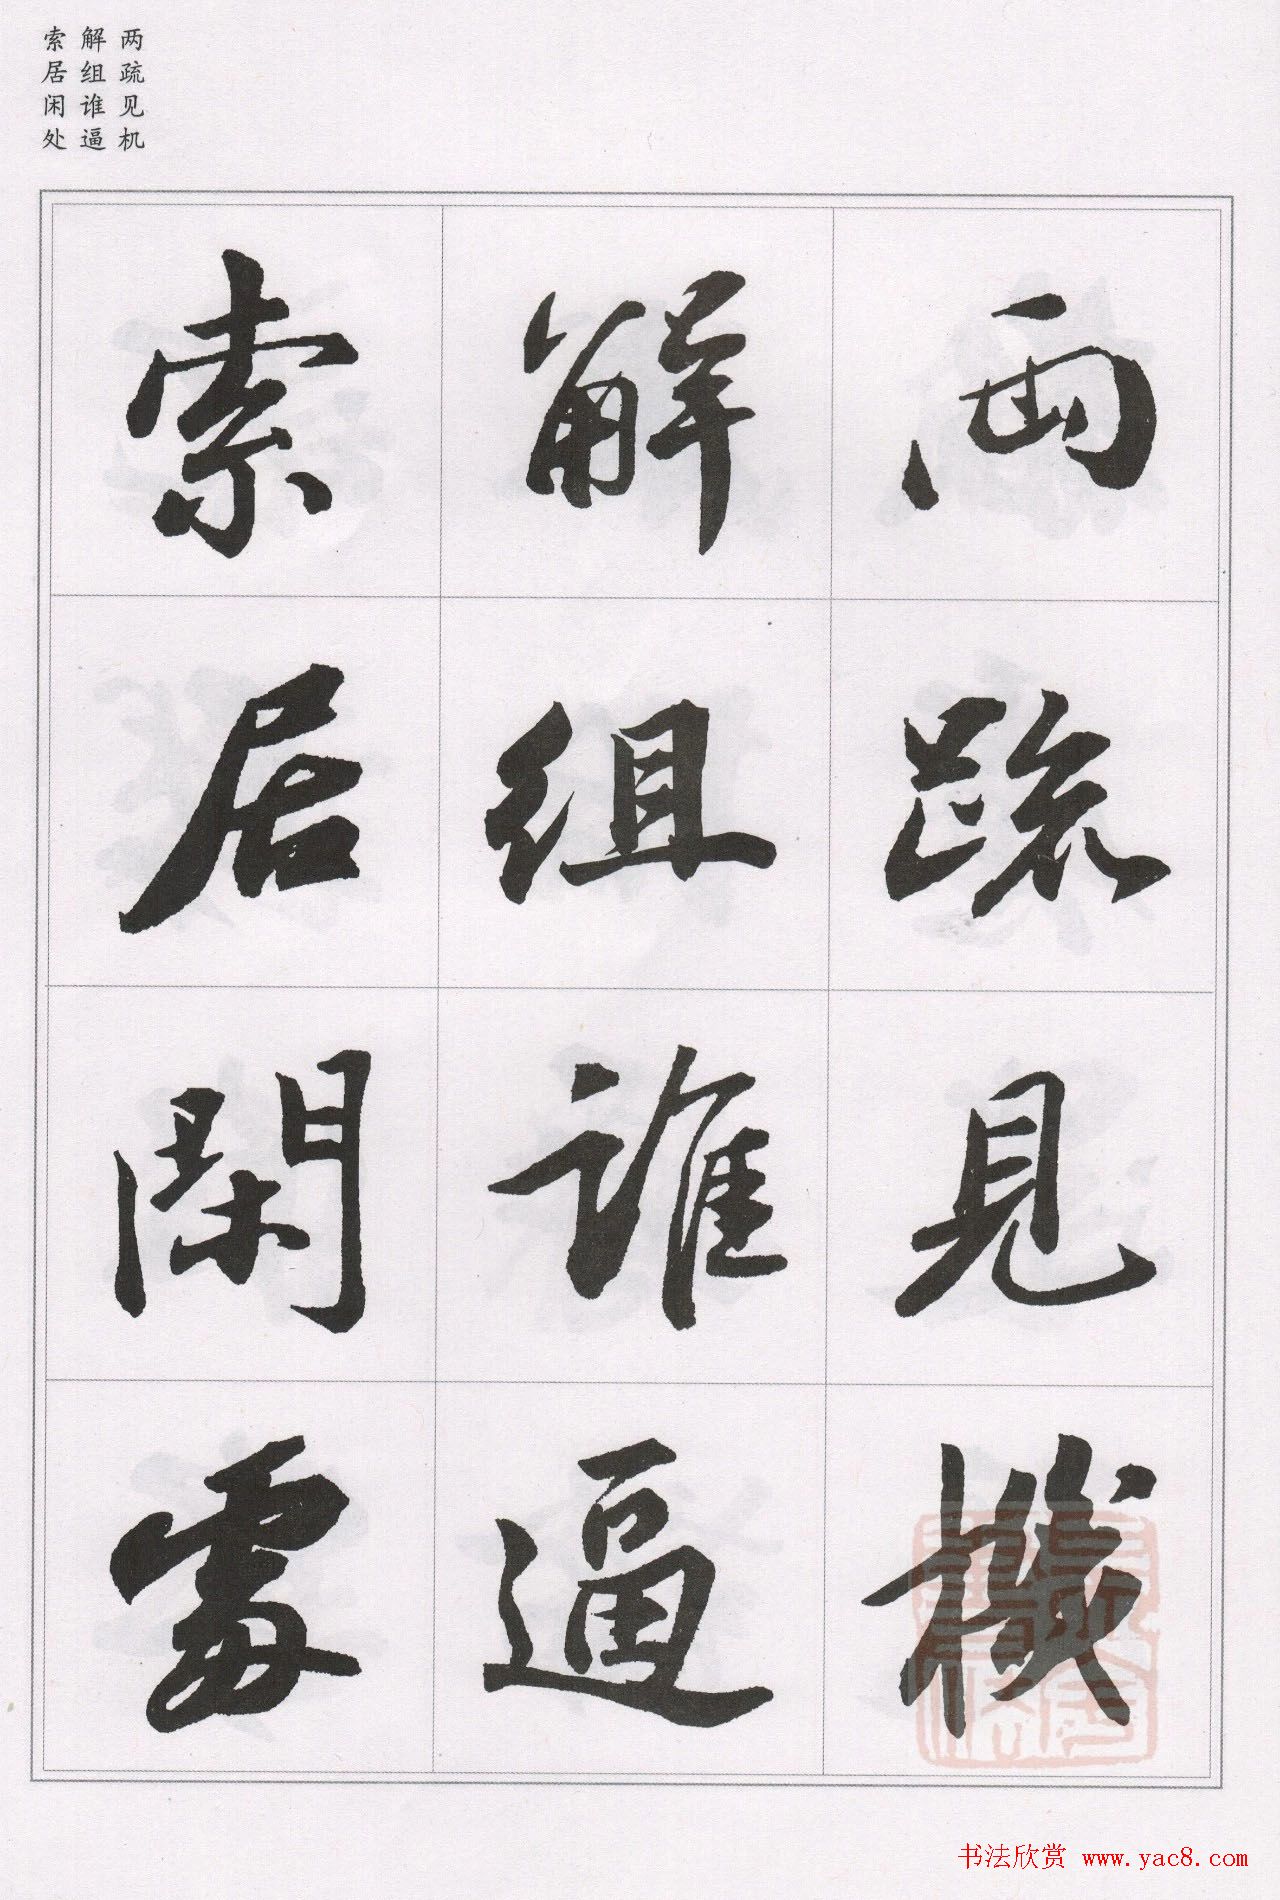 两疏见机
解组谁逼
索居闲处
兩疏見機
解組誰逼
索居閑處
书法欣赏 www.yac8.com